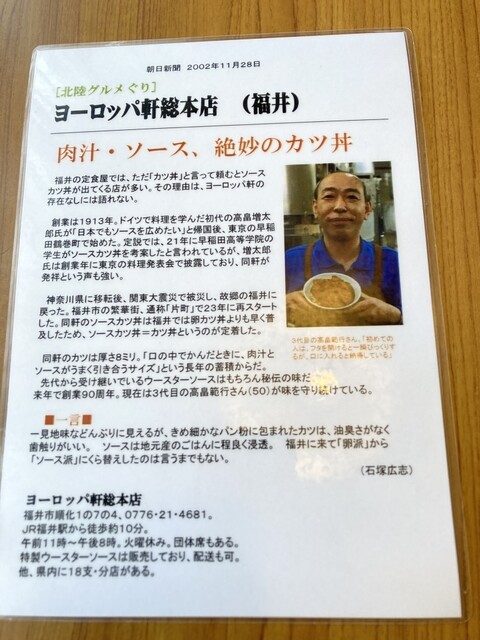 朝日新聞 2002年11月28日
[北陸グルメぐり]
ヨーロッパ軒総本店 (福井)
肉汁・ソース、絶妙のカツ丼
福井の定食屋では、ただ「カツ丼」と言って頼むとソース
カツ丼が出てくる店が多い。その理由は、ヨーロッパ軒の
存在なしには語れない。
創業は1913年。ドイツで料理を学んだ初代の高畠増太
郎氏が「日本でもソースを広めたい」と帰国後、東京の早稲
田鶴巻町で始めた。定説では、21年に早稲田高等学院の
学生がソースカツ丼を考案したと言われているが、増太郎
氏は創業年に東京の料理発表会で披露しており、同軒が
発祥という声も強い。
神奈川県に移転後、関東大震災で被災し、故郷の福井に
戻った。福井市の繁華街、通称「片町」で23年に再スタート
した。同軒のソースカツ丼は福井では卵カツ丼よりも早く普
及したため、ソースカツ丼=カツ丼というのが定着した。
同軒のカツは厚さ8ミリ。「口の中でかんだときに、肉汁と
ソースがうまく引き合うサイズ」という長年の蓄積からだ。
先代から受け継いでいるウースターソースはもちろん秘伝の味だ
来年で創業90周年。現在は3代目の高畠範行さん(50)が味を守り続けている。
3代目の高畠範行さん。「初めての
人は、フタを開けると一瞬びっくりす
るが、口に入れると納得している」
■一言■
一見地味などんぶりに見えるが、きめ細かなパン粉に包まれたカツは、油臭さがなく
歯触りがいい。 ソースは地元産のごはんに程良く浸透。 福井に来て「卵派」から
「ソース派」にくら替えしたのは言うまでもない。
(石塚広志)
ヨーロッパ軒総本店
福井市順化1の7の4、0776・21・4681。
JR福井駅から徒歩約10分。
午前11時~午後8時。火曜休み。団体席もある。
特製ウースターソースは販売しており、配送も可。
他、県内に18支・分店がある。